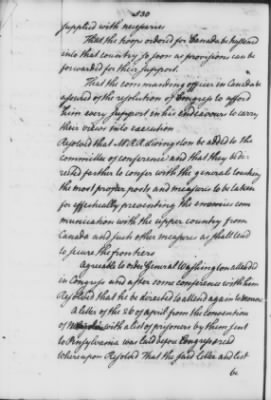 530
supplied with necessaries
That the troops ordered for Canada be hastened
into that country so soon as provisions can be
forwarded for their support.
That the commanding officer in Canada be
assured of the resolution of Congress to afford
him every support in his endeavour to carry
their views into execution
Resolved that Mr R R Livingston be added to the
committee of conference and that they be di-
rected farther to confer with the general touching
the most proper posts and measures to be taken
for effectually preventing the enemies com
munication with the upper country from
Canada and such other measures as shall tend
to secure the frontiers
Agreeable to order General Washington attended
in Congress and after some conference with him
Resolved that he be directed to attend again to morrow
A letter of the 28 of april from the convention
of with a list of prisoners by them sent
to Pensylvania was laid before Congress &amp; read
whereupon Resolved That the said letter and list
be